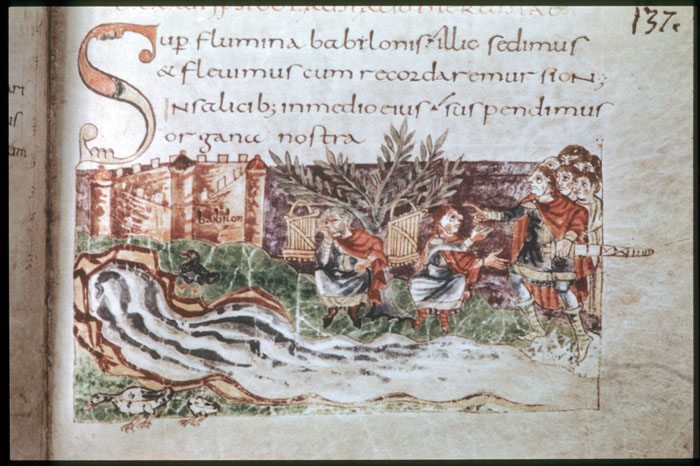 Sup flumina babilonis illic sedimus
& flevimus cum recordaremur sion;
In salicib; inmedioeius suspendimus
organa nostra
babilon
137